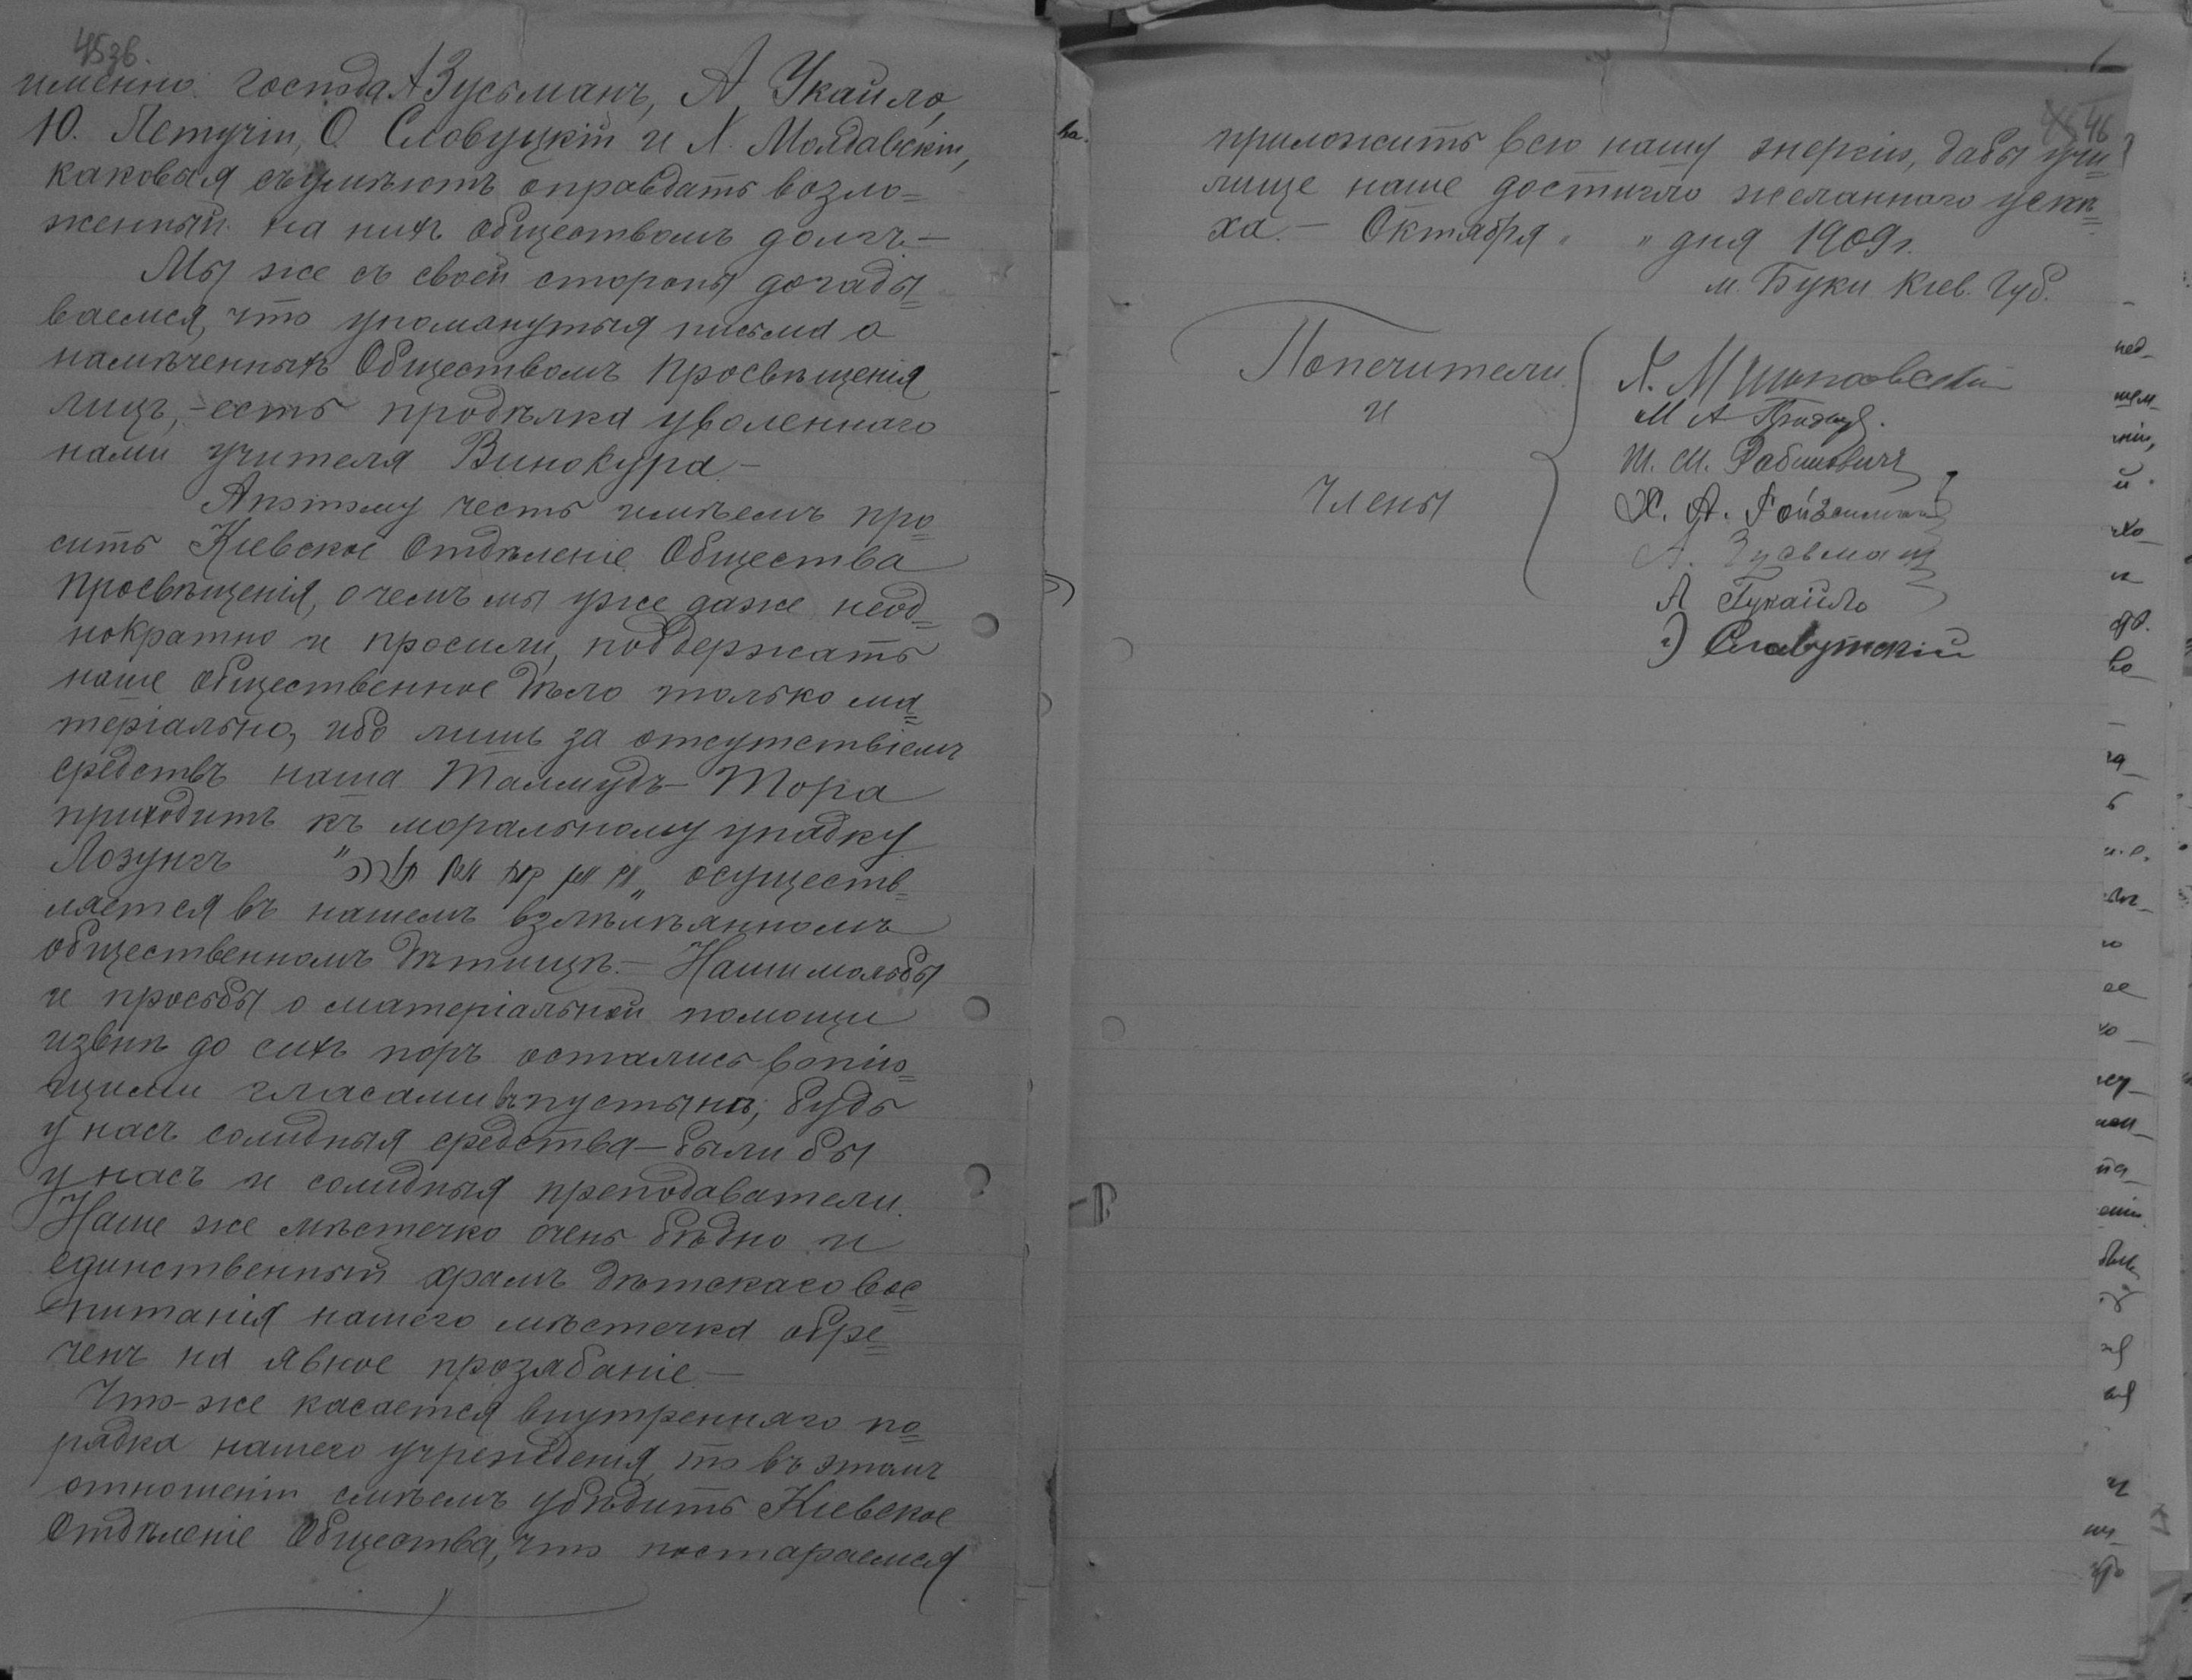 45зв.
именно господа А Зусьманъ, А. Укайло,
Ю. Летучій, О Словуцкій и Х. Молдавскій,
каковыя съумѣютъ оправдать возло=
женный на нихъ обществомъ долгъ.—
Мы же съ своей стороны догады=
ваемся, что упомянутыя письма о
намѣченныхъ Обществомъ Просвѣщенія
лицъ, — есть продѣлка уволеннаго
нами учителя Винокура.—
Апотому честь имѣемъ про=
сить Кіевское Отдѣленіе Общества
Просвѣщенія, о чемъ мы уже даже неод=
нократно и просили, поддержать
наше общественное дѣло только ма=
теріально, ибо лишь за отсутствіемъ
средствъ наша Талмудъ-Тора
приходитъ къ моральному упадку
Лозунгъ осуществ=
ляется въ нашемъ взлѣлѣянномъ
общественномъ дѣтищѣ.— Наши мольбы
и просьбы о матеріальной помощи
извнѣ до сихъ поръ остались вопію=
щими гласами въ пустынѣ; будь
у насъ солидныя средства — были бы
у насъ и солидныя преподаватели.
Наше же мѣстечко очень бѣдно и
единственный храмъ дѣтскаго вос=
питанія нашего мѣстечка обре=
ченъ на явное прозябаніе.—
Что-же касается внутренняго по=
рядка нашего учрежденія, то въ этомъ
отношеніи смѣемъ убѣдить Кіевское
Отдѣленіе Общества, что постараемся
46
приложить всю нашу энергію, дабы учи=
лище наше достигло желаннаго успѣ=
ха.— Октября " " дня 1909г.
м. Буки Кіев. Губ.
Попечители
и
Члены
Х.
М А
Ш. М. Рабиновичъ
Х. А. Ройзенманъ
А. Зусьманъ
А Гукайло
Славутскій